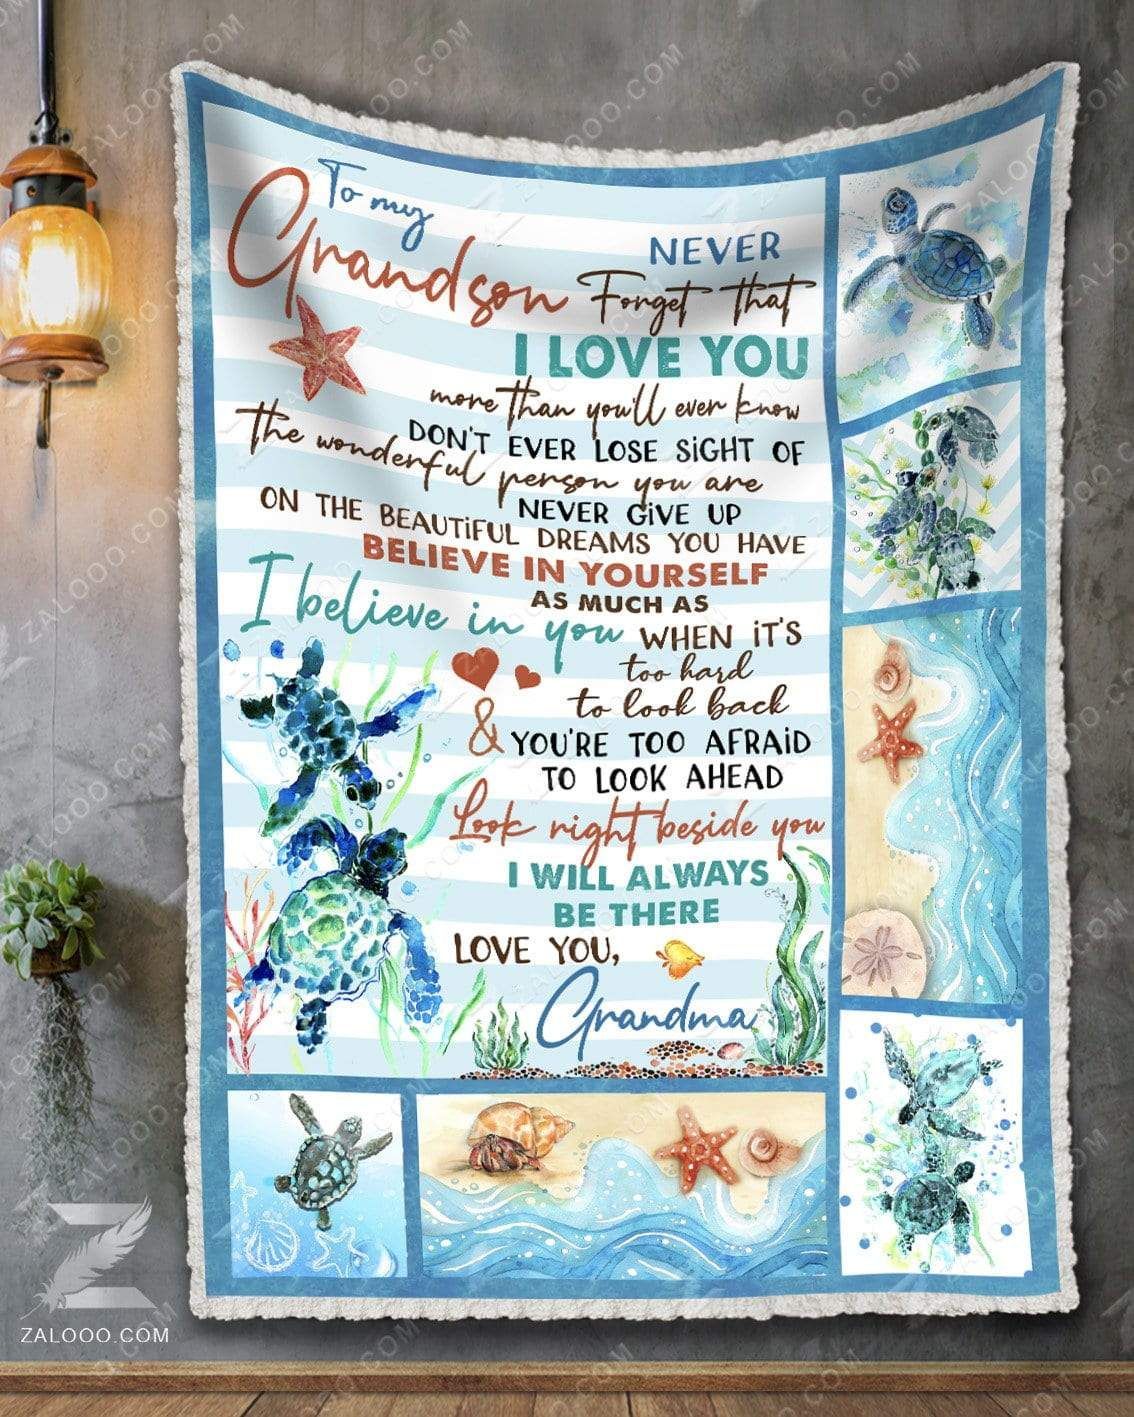 To my
Grandson
NEVER
Forget that
I LOVE YOU
more than you'll ever know
DON'T EVER LOSE SIGHT OF
the wonderful person you are
NEVER GIVE UP
ON THE BEAUTIFUL DREAMS YOU HAVE
BELIEVE IN YOURSELF
AS MUCH AS
I believe in you WHEN IT'S
too hard
to look back
& YOU'RE TOO AFRAID
TO LOOK AHEAD
Look right beside you
I WILL ALWAYS
BE THERE
LOVE YOU,
Grandma
Z
ZALOOO.COM